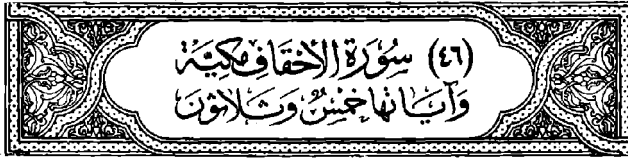 (٤٦) سُورَةُ الأحقافِ مَكيَّة
وَآيَاتُهَا خَمْسٌ وَثَلَاثُونَ